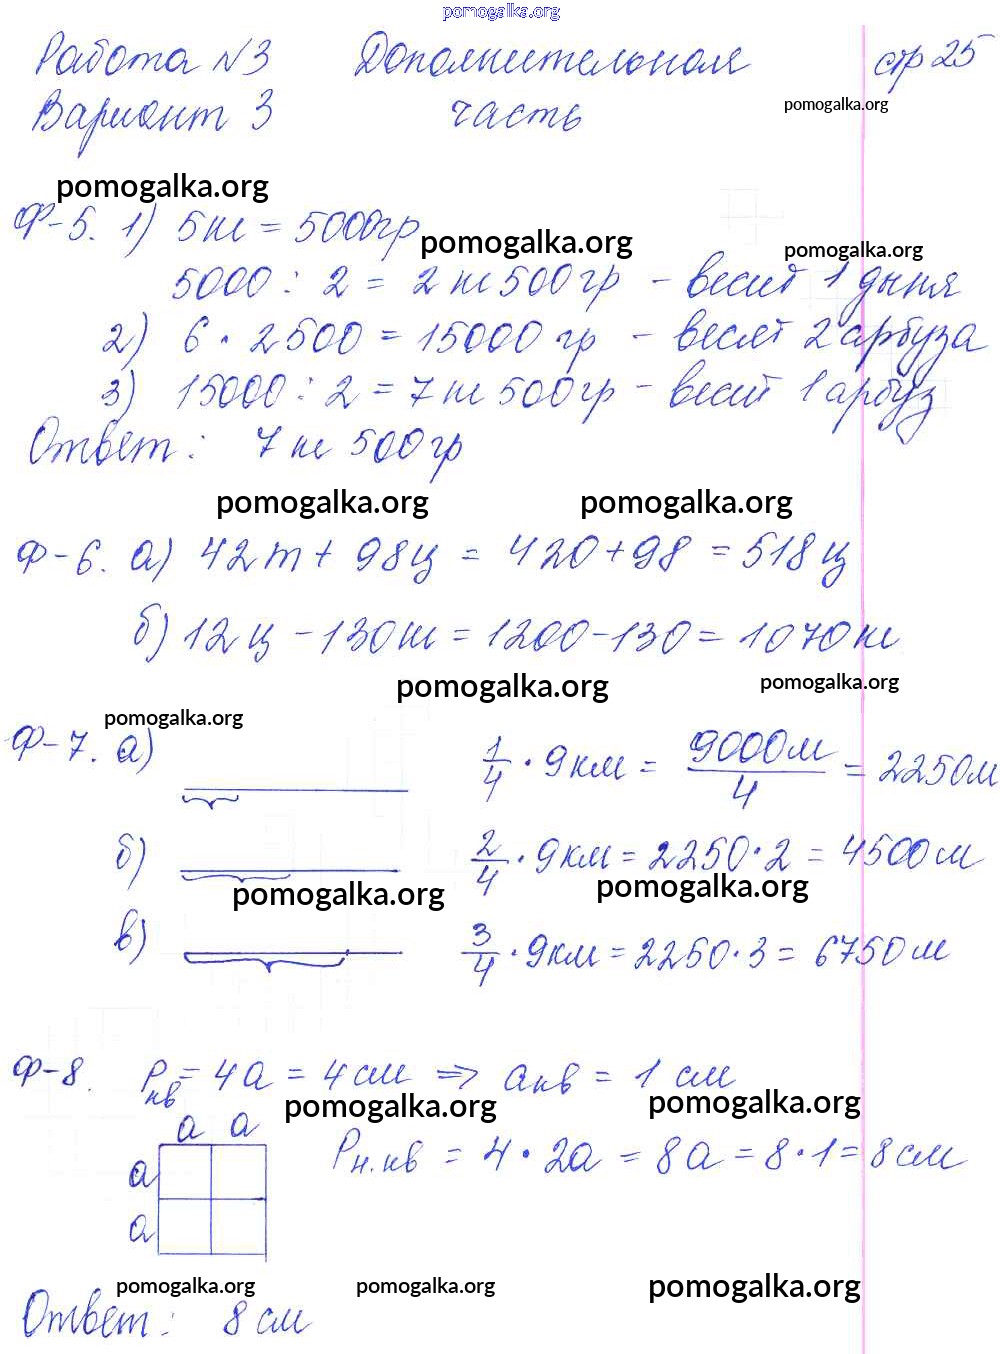 pomogalka.org
Работа №3 Дополнительная стр 25
Вариант 3 часть pomogalka.org
pomogalka.org
Ф-5. 1) 5кг = 5000гр
pomogalka.org pomogalka.org
5000 : 2 = 2 кг 500 гр - весит 1 дыня
2) 6 · 2500 = 15000 гр - весят 2 арбуза
3) 15000 : 2 = 7 кг 500 гр - весит 1 арбуз
Ответ: 7 кг 500 гр
pomogalka.org pomogalka.org
Ф-6. а) 42т + 98ц = 420 + 98 = 518 ц
б) 12 ц - 130 кг = 1200 - 130 = 1070 кг
pomogalka.org pomogalka.org
pomogalka.org
Ф-7. а) 1/4 · 9км = 9000м/4 = 2250м
б) 2/4 · 9км = 2250 · 2 = 4500 м
pomogalka.org pomogalka.org
в) 3/4 · 9км = 2250 · 3 = 6750 м
Ф-8. Pкв = 4а = 4 см => акв = 1 см
pomogalka.org pomogalka.org
а а
Pн.кв = 4 · 2а = 8а = 8 · 1 = 8 см
а
а
pomogalka.org pomogalka.org pomogalka.org
Ответ: 8 см